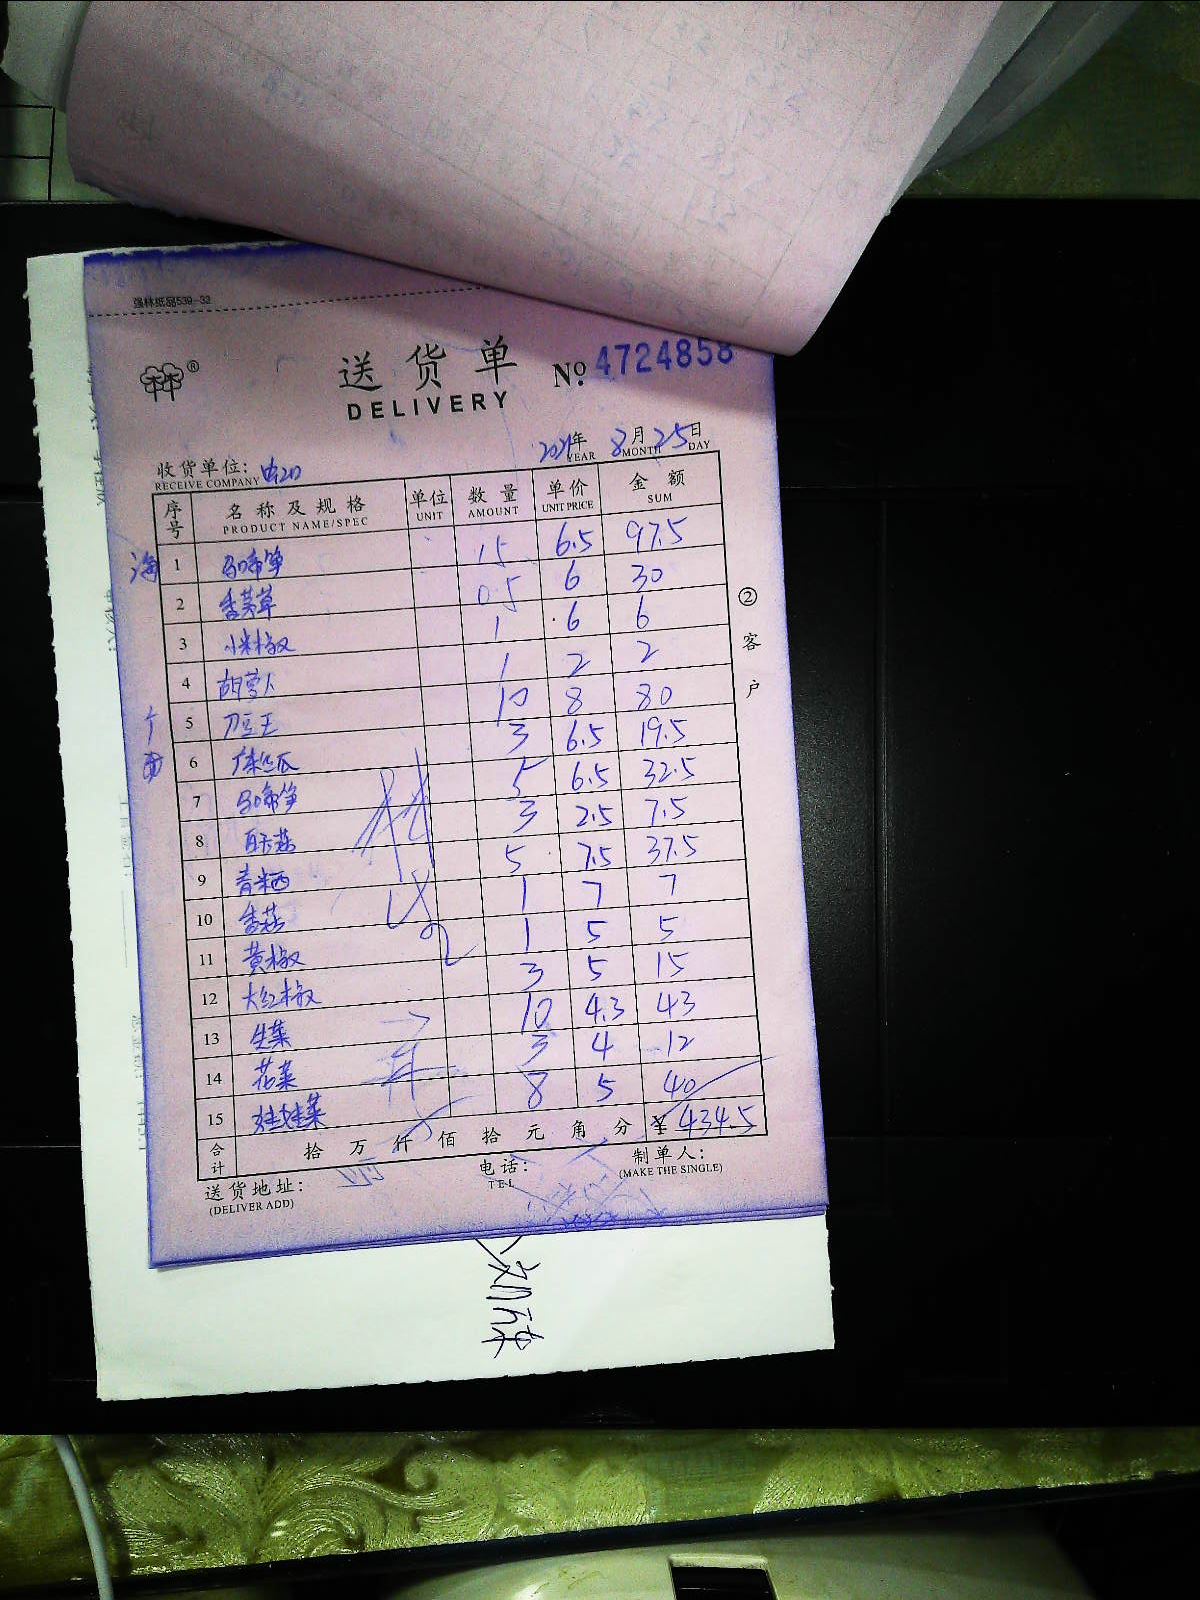 强林纸品539-32
送货单 No. 4724858
DELIVERY
2021年 8月 25日
YEAR MONTH DAY
收货单位:
RECEIVE COMPANY
序号 名称及规格 单位 数量 单价 金额
PRODUCT NAME/SPEC UNIT AMOUNT UNIT PRICE SUM
海 1 15 6.5 97.5
2 香茅草 0.5 6 30
3 小米椒 1 6 6
4 胡萝卜 1 2 2
5 刀豆王 10 8 80
6 3 6.5 19.5
7 5 6.5 32.5
8 3 2.5 7.5
9 青 5 7.5 37.5
10 香菇 1 7 7
11 黄椒 1 5 5
12 大红椒 3 5 15
13 生菜 10 4.3 43
14 花菜 3 4 12
15 娃娃菜 8 5 40
合计 拾 万 仟 佰 拾 元 角 分 ¥ 434.5
送货地址: 电话: 制单人:
(DELIVER ADD) TEL (MAKE THE SINGLE)
②客户